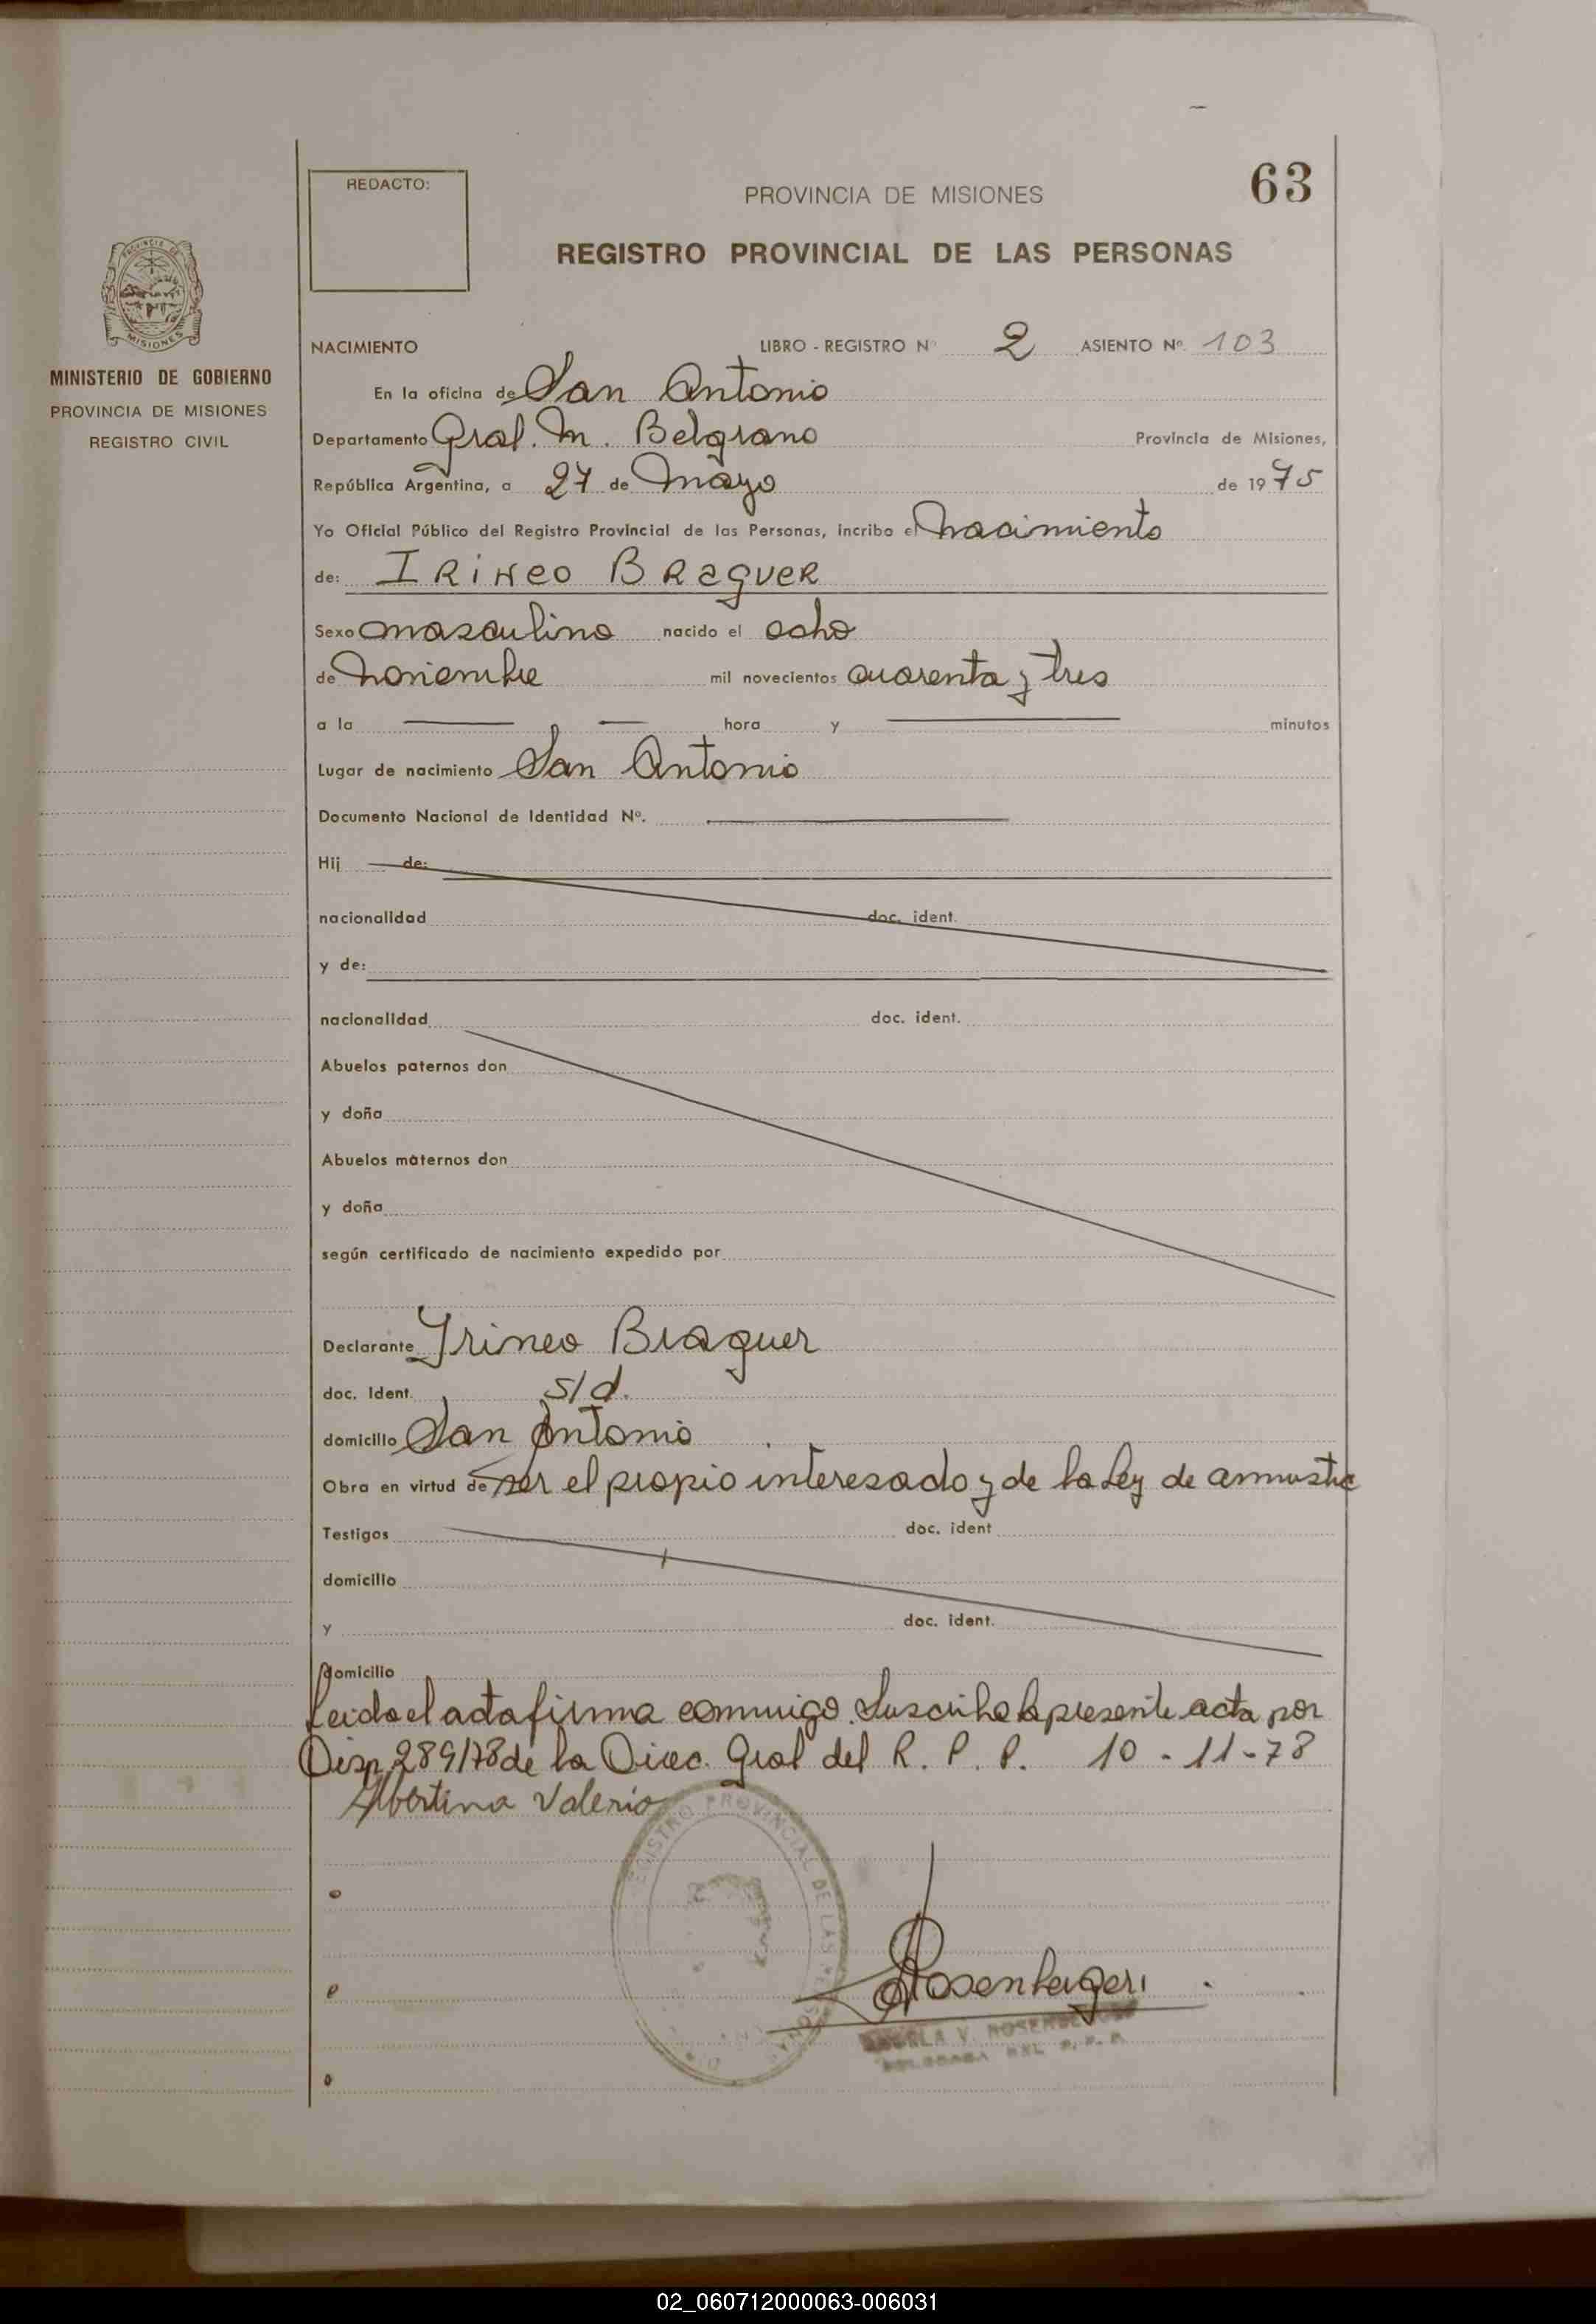 63
REDACTO:
PROVINCIA DE MISIONES
REGISTRO PROVINCIAL DE LAS PERSONAS
PROVINCIA DE
MISIONES
MINISTERIO DE GOBIERNO
PROVINCIA DE MISIONES
REGISTRO CIVIL
NACIMIENTO LIBRO - REGISTRO Nº 2 ASIENTO Nº. 103
En la oficina de San Antonio
Departamento Gral. M. Belgrano Provincia de Misiones,
República Argentina, a 27 de Mayo de 1975
Yo Oficial Público del Registro Provincial de las Personas, incribo el nacimiento
de: IRINEO BRAGUER
Sexo masculino nacido el ocho
de noviembre mil novecientos cuarenta y tres
a la hora y minutos
Lugar de nacimiento San Antonio
Documento Nacional de Identidad Nº.
Hij de:
nacionalidad doc. ident.
y de:
nacionalidad doc. ident.
Abuelos paternos don
y doña
Abuelos maternos don
y doña
según certificado de nacimiento expedido por
Declarante Yrineo Braguer
doc. Ident. s/d.
domicilio San Antonio
Obra en virtud de ser el propio interesado y de la Ley de amnistia
Testigos doc. ident
domicilio
y doc. ident.
domicilio
Leida el acta firma conmigo. Suscribe la presente acta por
Disp. 289/78 de la Direc. Gral del R. P. P. 10-11-78
Albertina Valerio
REGISTRO PROVINCIAL DE LAS PERSONAS
Rosenberger
V. ROSENBERGER
R. P. P.
02_060712000063-006031